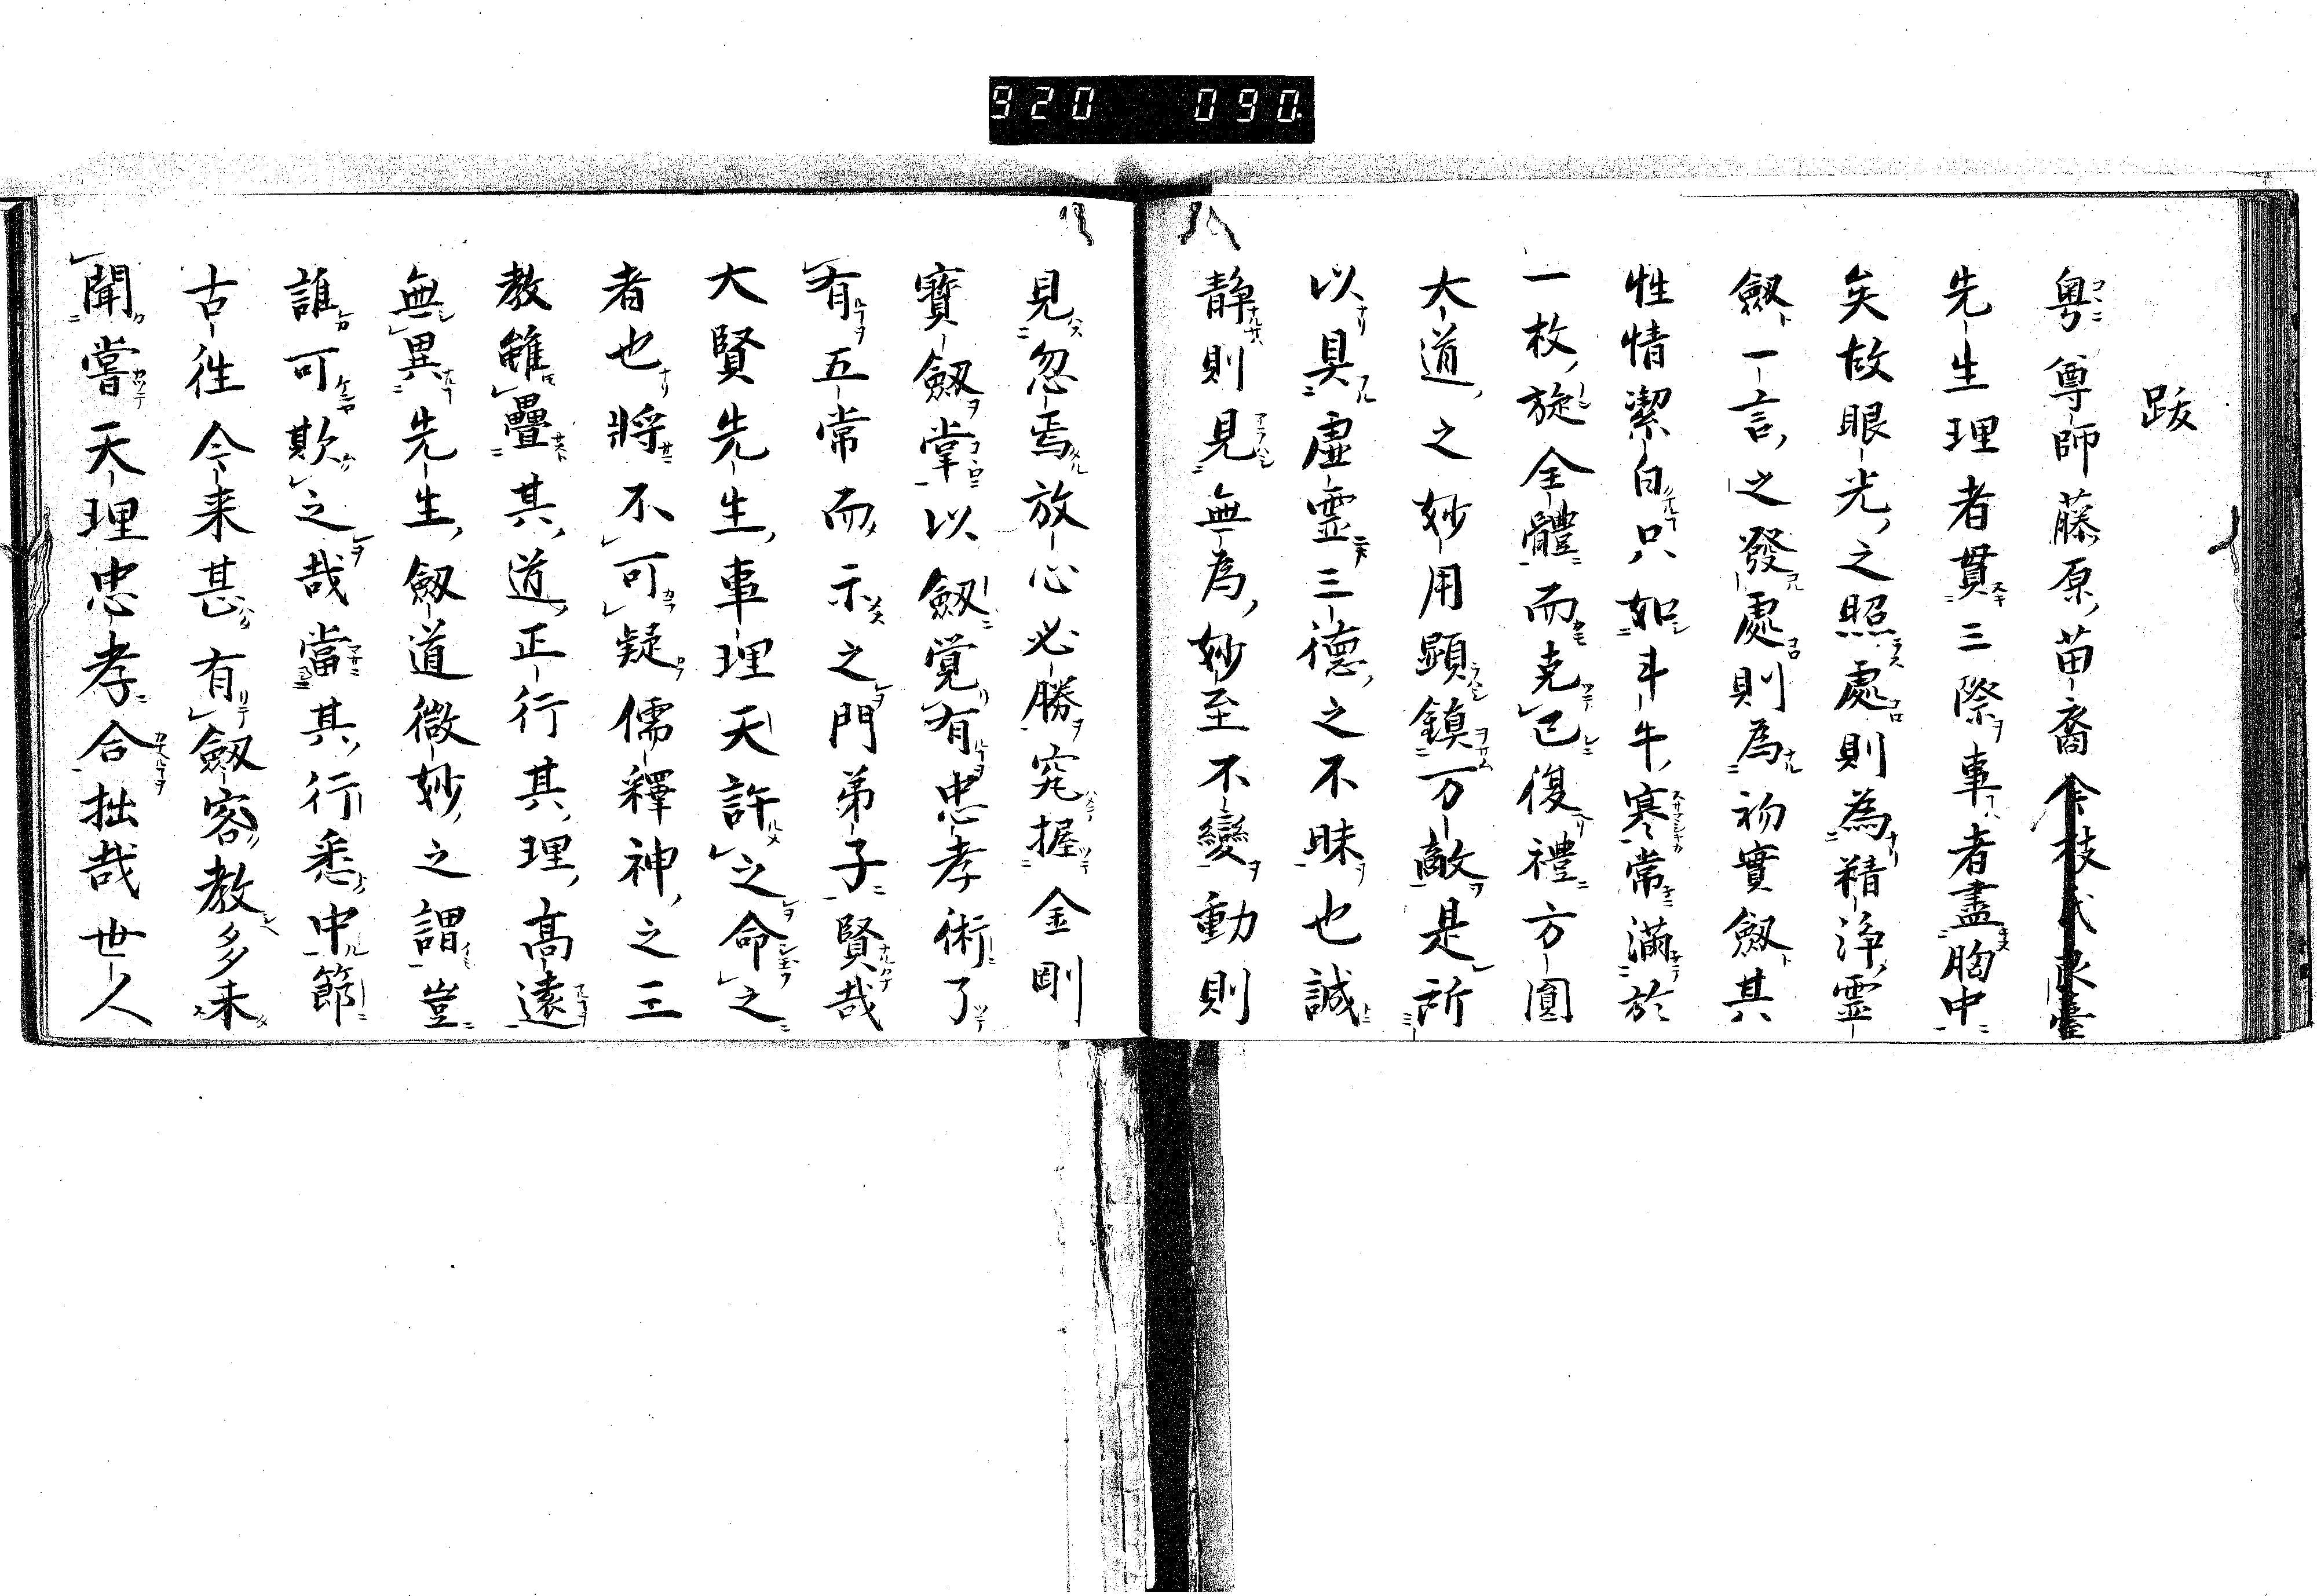 920 090.
跋
粤尊師藤原苗裔今枝氏良臺
先生理者貫三際事者盡胸中
矣故眼光之照處則為精浄霊
劔一言之發處則為初實劔其
性情潔白只如斗牛寒常満於
一枚旋全體而克己復禮方圓
大道之妙用顕鎮万敵是所
以具虚霊三德之不昧也誠
静則見無為妙至不變動則
見忽焉放心必勝究握金剛
寶劔掌以劔覚有忠孝術了
有五常而示之門弟子賢哉
大賢先生事理天許之命之
者也將不可疑儒釋神之三
教雖疊其道正行其理高遠
無異先生劔道微妙之謂豈
誰可欺之哉當其行悉中節
古徃今来甚有劔容教多未
聞嘗天理忠孝合拙哉世人